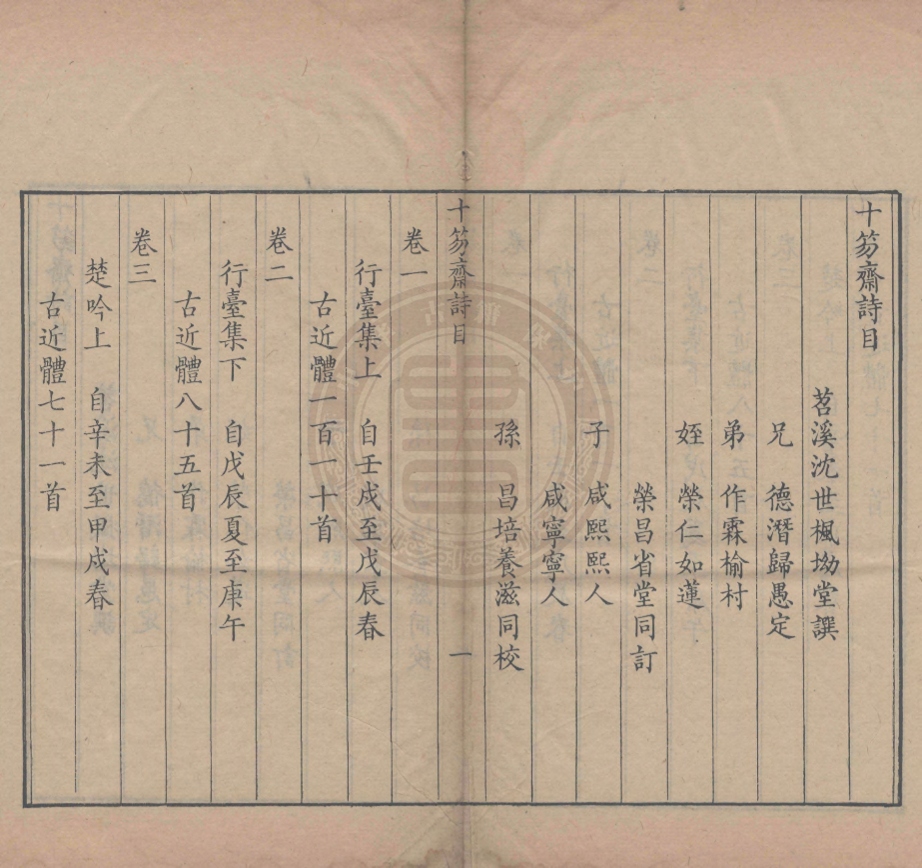 十笏齋詩目
苕溪沈世楓坳堂譔
兄　德潛歸愚定
弟　作霖榆村
姪　榮仁如蓮
榮昌省堂同訂
子　咸熙熙人
咸寧寧人
孫　昌培養滋同校
十笏齋詩目　一
卷一
行臺集上　自壬戌至戊辰春
古近體一百一十首
卷二
行臺集下　自戊辰夏至庚午
古近體八十五首
卷三
楚吟上　自辛未至甲戌春
古近體七十一首